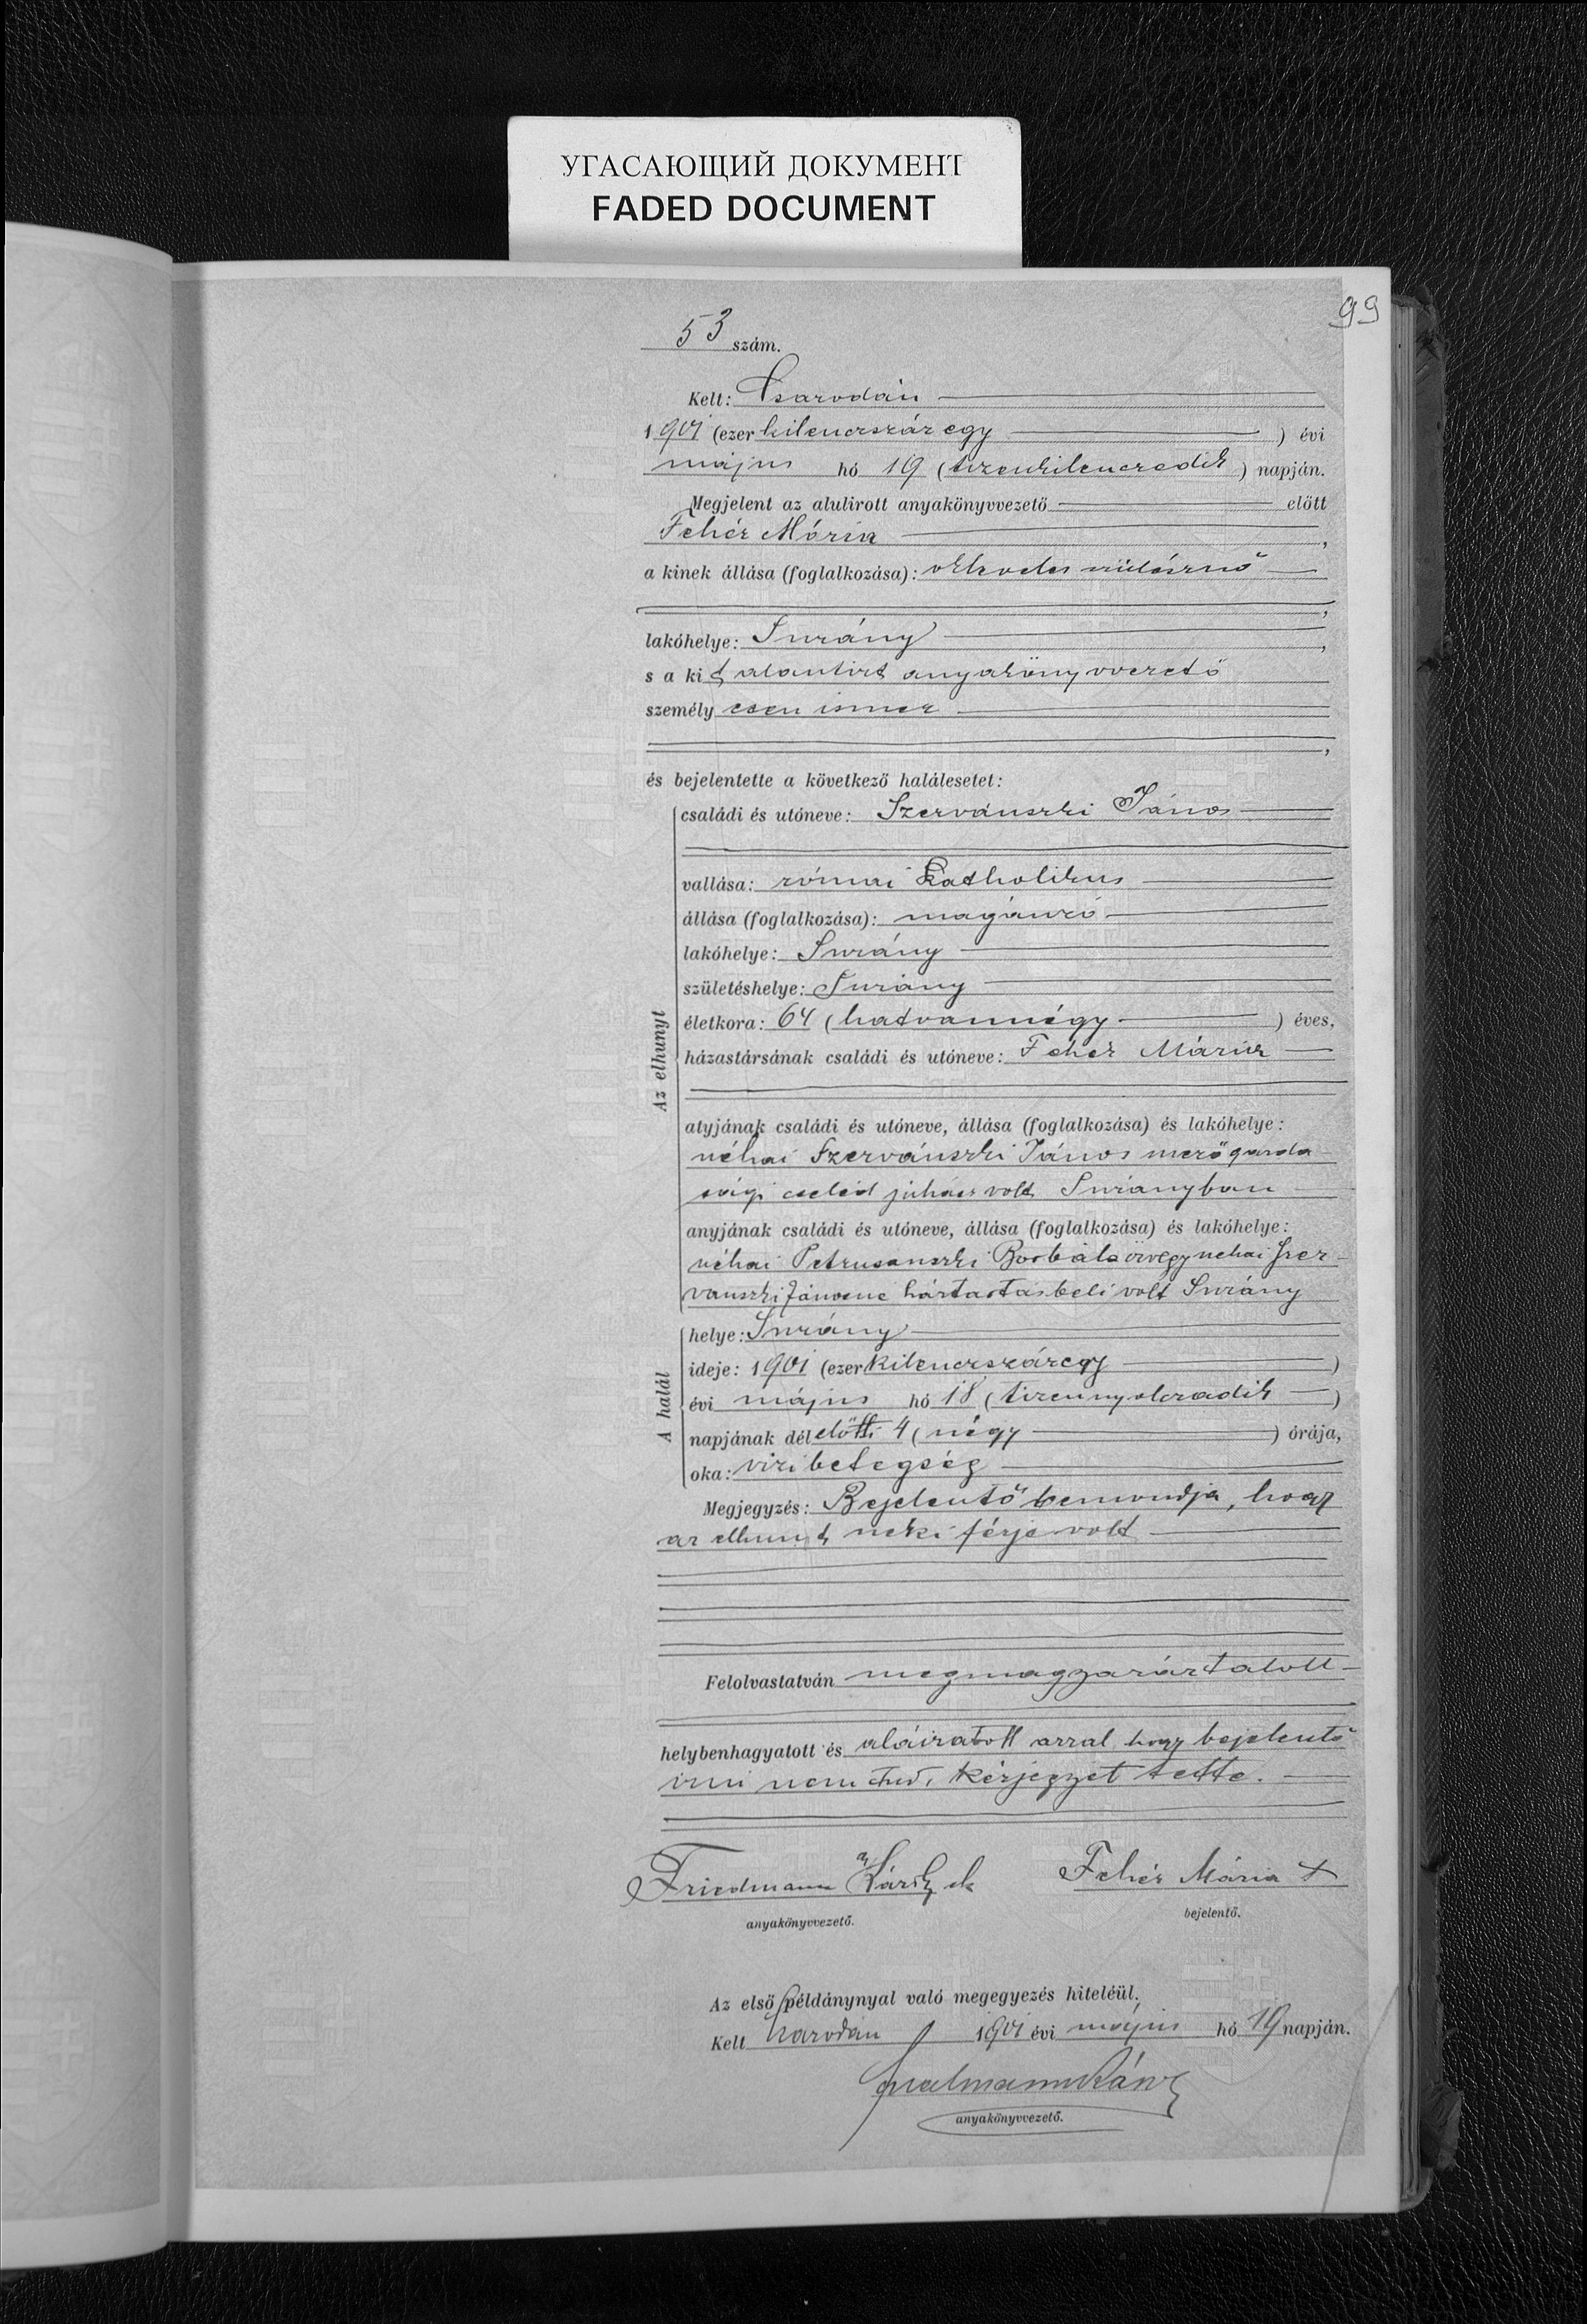 УГАСАЮЩИЙ ДОКУМЕНТ
FADED DOCUMENT
99
53 szám.
Kelt: Csarodán
1901 (ezer kilenczszáz egy) évi
május hó 19 (tizenkilenczedik) napján.
Megjelent az alulirott anyakönyvvezető előtt
Fehér Mária,
a kinek állása (foglalkozása): okleveles szülésznő
,
lakóhelye: Surány,
s a kit alantirt anyakönyvvezető
személyesen ismer
,
és bejelentette a következő halálesetet:
Az elhunyt
családi és utóneve: Szervánszki János
vallása: római katholikus
állása (foglalkozása): magánzó
lakóhelye: Surány
születéshelye: Surány
életkora: 64 (hatvannégy) éves,
házastársának családi és utóneve: Fehér Mária
atyjának családi és utóneve, állása (foglalkozása) és lakóhelye:
néhai Szervánszki János mezőgazda
sági cseléd juhász volt Surányban
anyjának családi és utóneve, állása (foglalkozása) és lakóhelye:
néhai Petrusanszki Borbála özvegy nehai Szer-
vanszki Jánosne háztartásbeli volt Surány
A halál
helye: Surány
ideje: 1901 (ezer kilenczszázegy)
évi május hó 18 (tizennyolczadik)
napjának dél előtti 4 (négy) órája,
oka: vizibetegség
Megjegyzés: Bejelentő bemondja, hogy
az elhunyt neki férje volt
Felolvastatván megmagyaráztatott
helybenhagyatott és aláiratott azzal hogy bejelentő
irni nem tud, kézjegyet tette.
Friedmann Károly
Fehér Mária +
anyakönyvvezető.
bejelentő.
Az első példánynyal való megegyezés hiteléül.
Kelt Csarodán 1901 évi május hó 19 napján.
anyakönyvvezető.